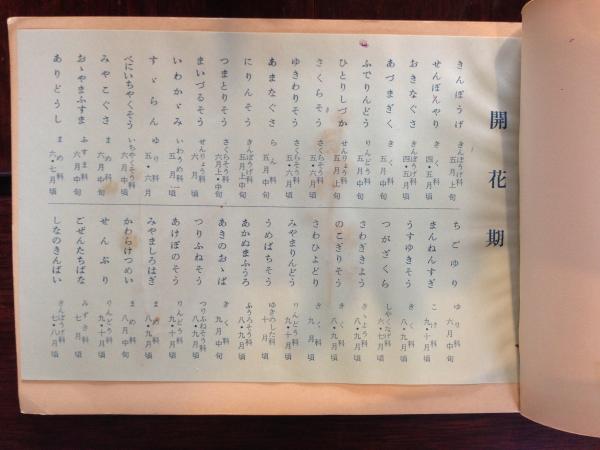 開花期
きんぽうげ きんぽうげ科 五月上旬
せんぼんやり きく科 四・五月頃
おきなぐさ きんぽうげ科 四・五月頃
あづまぎく きく科 五月頃
ふでりんどう りんどう科 五月頃
ひとりしづか せんりょう科 五月上旬
さくらそう さくらそう科 五・六月頃
ゆきわりそう さくらそう科 五・六月頃
あまなぐさ らん科 五月中旬
にりんそう きんぽうげ科 五月中旬
つまとりそう さくらそう科 六月上・中旬
まいづるそう せんりょう科 六月頃
いわかゞみ いわうめ科 六月頃
すゞらん ゆり科 五・六月
べにいちやくそう いちやくそう科 六月中旬
みやこぐさ まめ科 六月中旬
おゝやまふすま ふすま科 六月中旬
ありどうし まめ科 六・七月頃
ちごゆり ゆり科 六月中旬
まんねんすぎ こけ科 九・十月頃
うすゆきそう きく科 八・九月頃
つがざくら しやくなげ科 六・七月頃
さわぎきよう きゝよう科 八・九月頃
のこぎりそう きく科 八・九月頃
さわひよどり きく科 九月頃
みやまりんどう りんどう科 九・十月頃
うめばちそう ゆきのした科 十月頃
あかぬまふうろ ふうろそう科 八・九月頃
あきのおゝば きく科 九月頃
つりふねそう つりふねそう科 八・九月頃
あけぼのそう りんどう科 九・十月頃
みやましろはぎ まめ科 九月頃
かわらけつめい まめ科 八月中旬
せんぶり りんどう科 九・十月頃
ごぜんたちばな みずき科 七月頃
しなのきんばい きんぽうげ科 七・八月頃